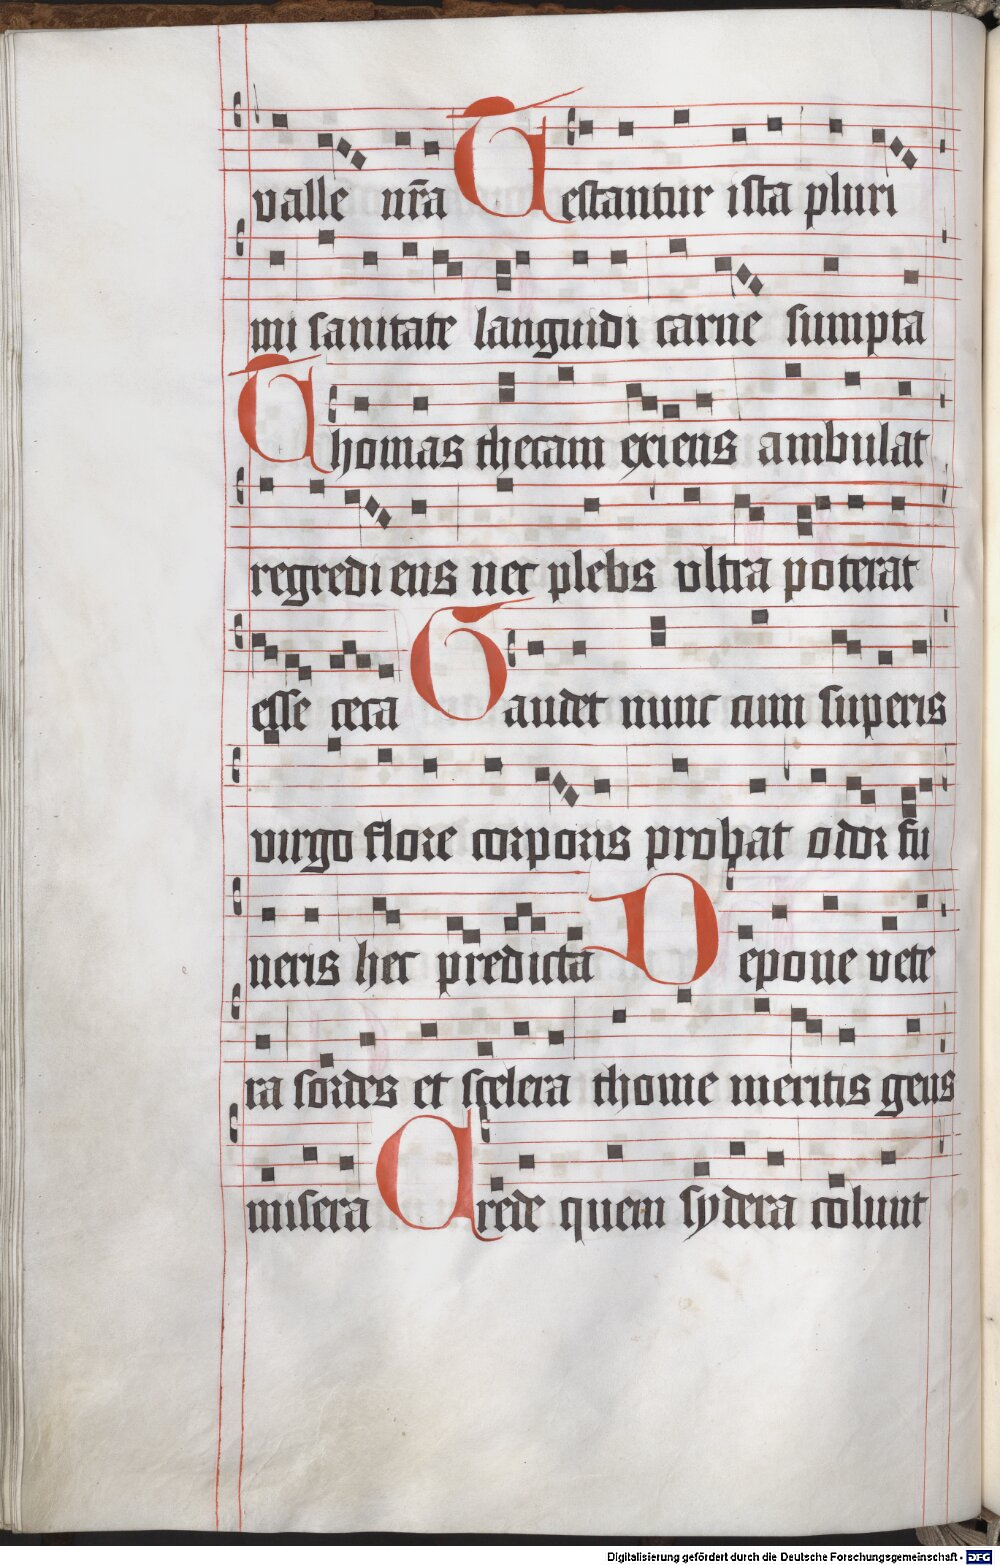 valle nr̄a Testantur ista pluri
mi sanitate languidi carne sumpta
Thomas thecam exiens ambulat
regrediens nec plebs ultra poterat
esse ceca Gaudet nunc cum superis
virgo flore corporis probat odor fu
neris hec predicta Depone vete
ra sordes et scelera thome meritis gens
misera Crede quem sydera colunt
Digitalisierung gefördert durch die Deutsche Forschungsgemeinschaft - DFG